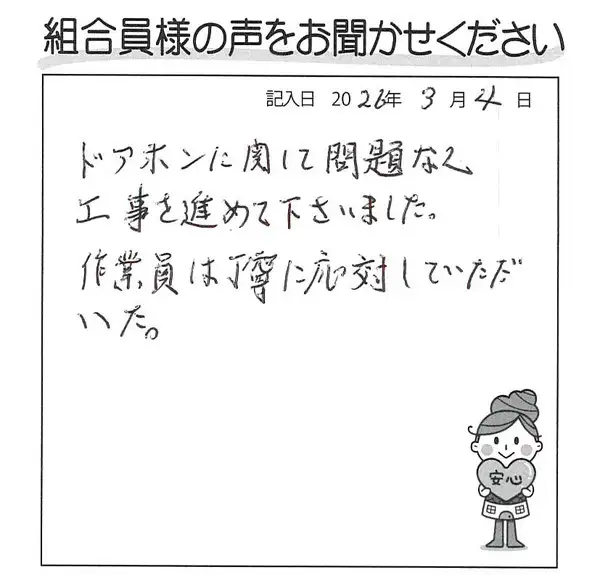 組合員様の声をお聞かせください
記入日 2026年 3月 4日
ドアホンに関して問題なく
工事を進めて下さいました。
作業員は丁寧に応対していただ
いた。
安心